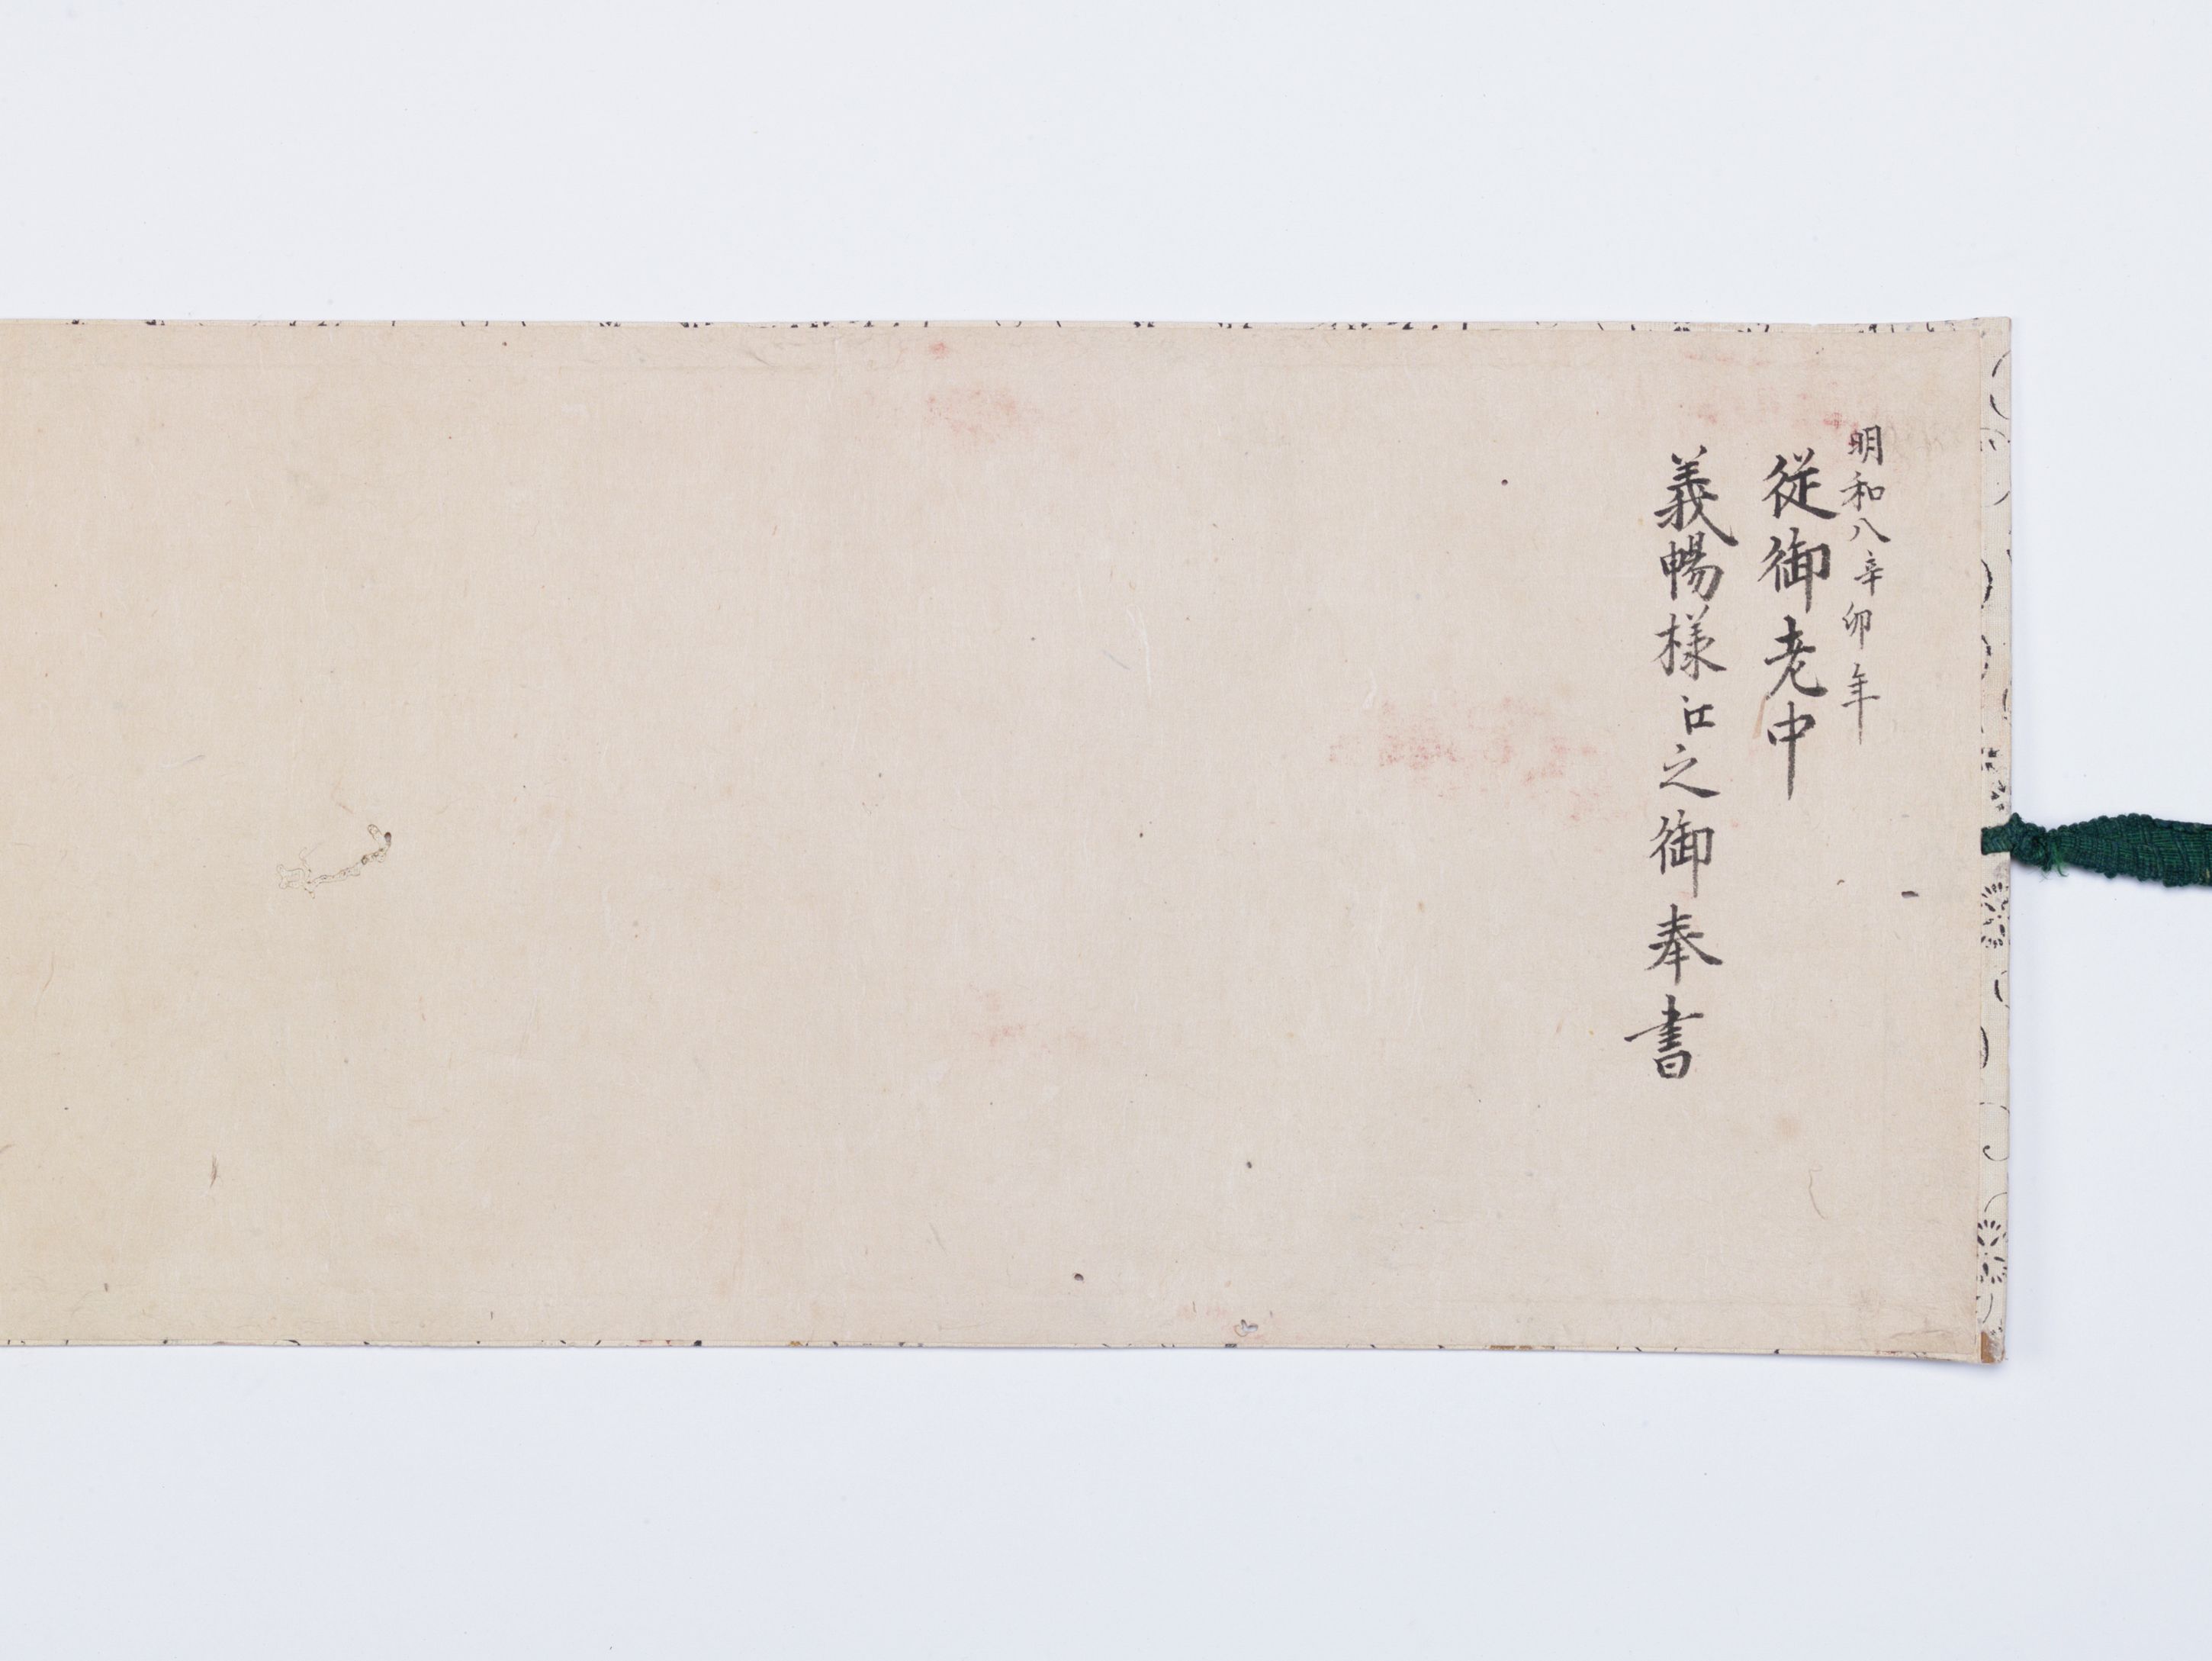 明和八辛卯年
従御老中
義暢様江之御奉書